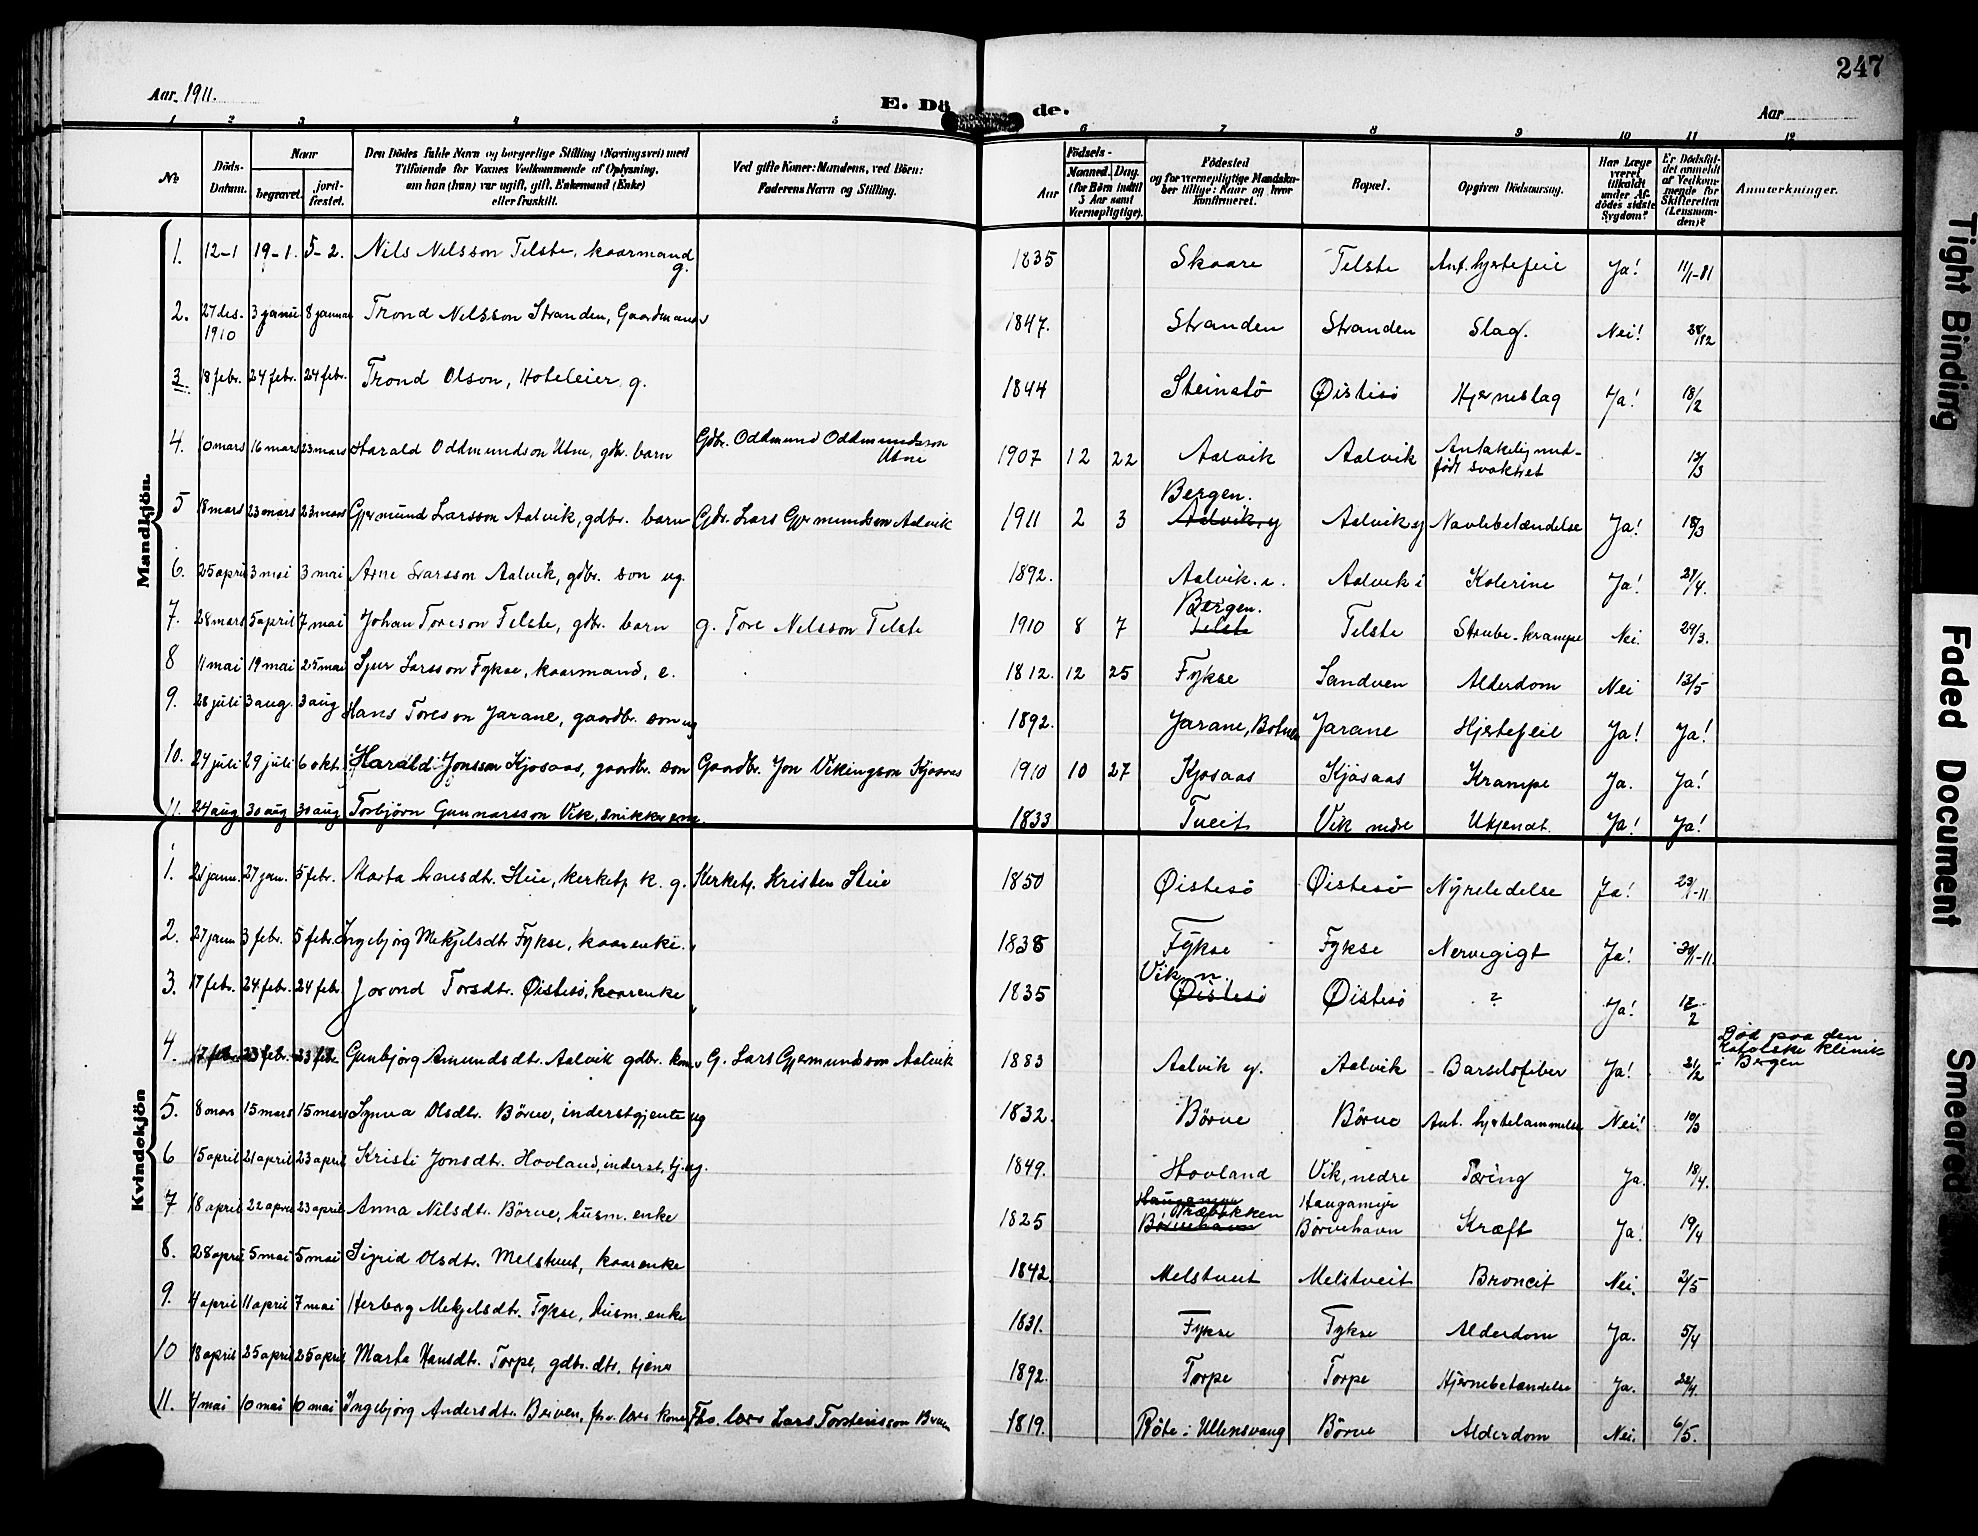 247
Aar 1911.
E. Dö de.
Aar
1 2 3 4 5 6 7 8 9 10 11 12
No.
Döds-Datum.
Naar
begravet.
jord-fæstet.
Den Dödes fulde Navn og borgerlige Stilling (Næringsvei) med
Tilföiende for Voxnes Vedkommende af Oplysning,
om han (hun) var ugift, gift, Enkemand (Enke)
eller fraskilt.
Ved gifte Koner: Mandens, ved Börn:
Faderens Navn og Stilling.
Födsels-
Aar
Maaned. Dag.
(for Börn indtil
3 Aar samt
Værnepligtige).
Födested
og for værnepligtige Mandska-
ber tillige: Naar og hvor
konfirmeret.
Bopæl.
Opgiven Dödsaarsag.
Har Læge
været
tilkaldt
under Af-
dödes sidste
Sygdom?
Er Dödsfal-
det anmeldt
af Vedkom-
mende for
Skifteretten
(Lensman-
den)?
Anmærkninger.
Mandkjön.
1. 12-1 19-1. 5-2. Nils Nilsson Telste, kaarmand g. 1835 Skaare Telste Ant. hjertefeil Ja! 11/1-81
2. 27 des. 1910 3 janu 8 januar Trond Nilsson Stranden, Gaardmand 1847. Stranden Stranden Slag. Nei! 28/12
3. 18 febr. 24 febr. 24 febr. Trond Olson, Hoteleier g. 1844 Steinstö Øistisö Hjerneslag Ja! 18/2
4. 10 mars 16 mars 23 mars Harald Oddmundson Utne, gdbr. barn Gdbr. Oddmund Oddmundsson Utne 1907 12 22 Aalvik Aalvik Antakelig med-født svakhet 13/3
5 18 mars 23 mars 23 mars Gjermund Larsson Aalvik, gdbr. barn Gdr. Lars Gjermundson Aalvik 1911 2 3 Bergen. Aalvik, y Aalvik y Navlebetændelse Ja! 18/3
6. 25 april 3 mai 3 mai Arne Larsson Aalvik, gdbr. son ug. 1892. Aalvik. i. Aalvik i Kolerine Ja! 27/4.
7. 28 mars 5 april 7 mai Johan Toreson Telste, gdbr. barn g. Tore Nilsson Telste 1910 8 7 Bergen. Telste Telste Strube-krampe Nei 29/3.
8 11 mai 19 mai 25 mai Sjur Larsson Fykse, kaarmand, e. 1812. 12 25 Fykse Sandven Alderdom Nei 13/5
9. 28 juli 3 aug. 3 aug Hans Toreson Jarane, gaardbr. son ug 1892. Jarane, Botnen Jarane Hjertefeil Ja! Ja!
10. 24 juli 29 juli 6 okt. Harald Jonsson Kjosaas, gaardbr. son Gaardbr. Jon Vikingson Kjosaas 1910 10 27 Kjosaas Kjosaas Krampe Ja. Ja!
11. 24 aug 30 aug 30 aug Torbjörn Gunnarsson Vik, snikker enk 1833 Tveit Vik nedre Ukjendt. Ja! Ja!
Kvindekjön
1. 21 janu. 27 jan. 5 febr. Marta Larsdtr. Stue, kerketj. k. g. Kerketj. Kristen Stue 1850 Øistesö Øistesö Nyrelidelse Ja! 23/1-11
2. 27 janu 3 febr. 5 febr. Ingebjørg Mikjelsdtr Fykse, kaarenke. 1838 Fykse Fykse Nervegigt Ja! 30/1-11.
3. 17 febr. 24 febr. 24 febr Jorond Torsdtr. Øistesö, kaarenke 1835 Vik n. Øistesö Øistesö ? Ja! 18/2
4. 17 febr 23 febr. 23 febr Gunbjørg Amundsdtr. Aalvik gdbr. kone G. Lars Gjermundson Aalvik 1883 Aalvik y. Aalvik Barselsfeber Ja! 21/2 Död paa den katolske klinik i Bergen
5. 8 mars 15 mars 15 mars Synva Olsdtr. Börve, inderstgjente ug 1832. Börve Börve Ant. hjertelammelse Nei! 10/3
6 15 april 21 april 23 april Kristi Jonsdtr. Hovland, inderst. tj. ug. 1849. Hovland Vik, nedre Tæring Ja. 18/4.
7 18 april 22 april 23 april Anna Nilsdtr. Börve, husm. enke 1825 Haugamyr Træbakken Börvehavn Haugamyr Börvehavn Kræft Ja! 19/4
8. 28 april 5 mai 5 mai Sigrid Olsdtr. Melstveit, kaarenke 1842. Melstveit Melstveit Broncit Nei. 2/5
9. 4 april 11 april 7 mai Herborg Mikjelsdtr. Fykse, husm. enke 1831. Fykse Fykse Alderdom Ja. 5/4
10 18 april 25 april 25 april Marta Hansdtr. Torpe, gdbr. dtr, tjene 1892. Torpe Torpe Hjernebetændelse Ja. 22/4
11. 4 mai 10 mai 10 mai Ingebjørg Andersdtr. Börven, fhv. læs kone Fhv. læs Lars Torsteinsson Börven 1819. Röte i Ullensvang Börve Alderdom Nei. 6/5.
Tight Binding
Faded Document
Smeared